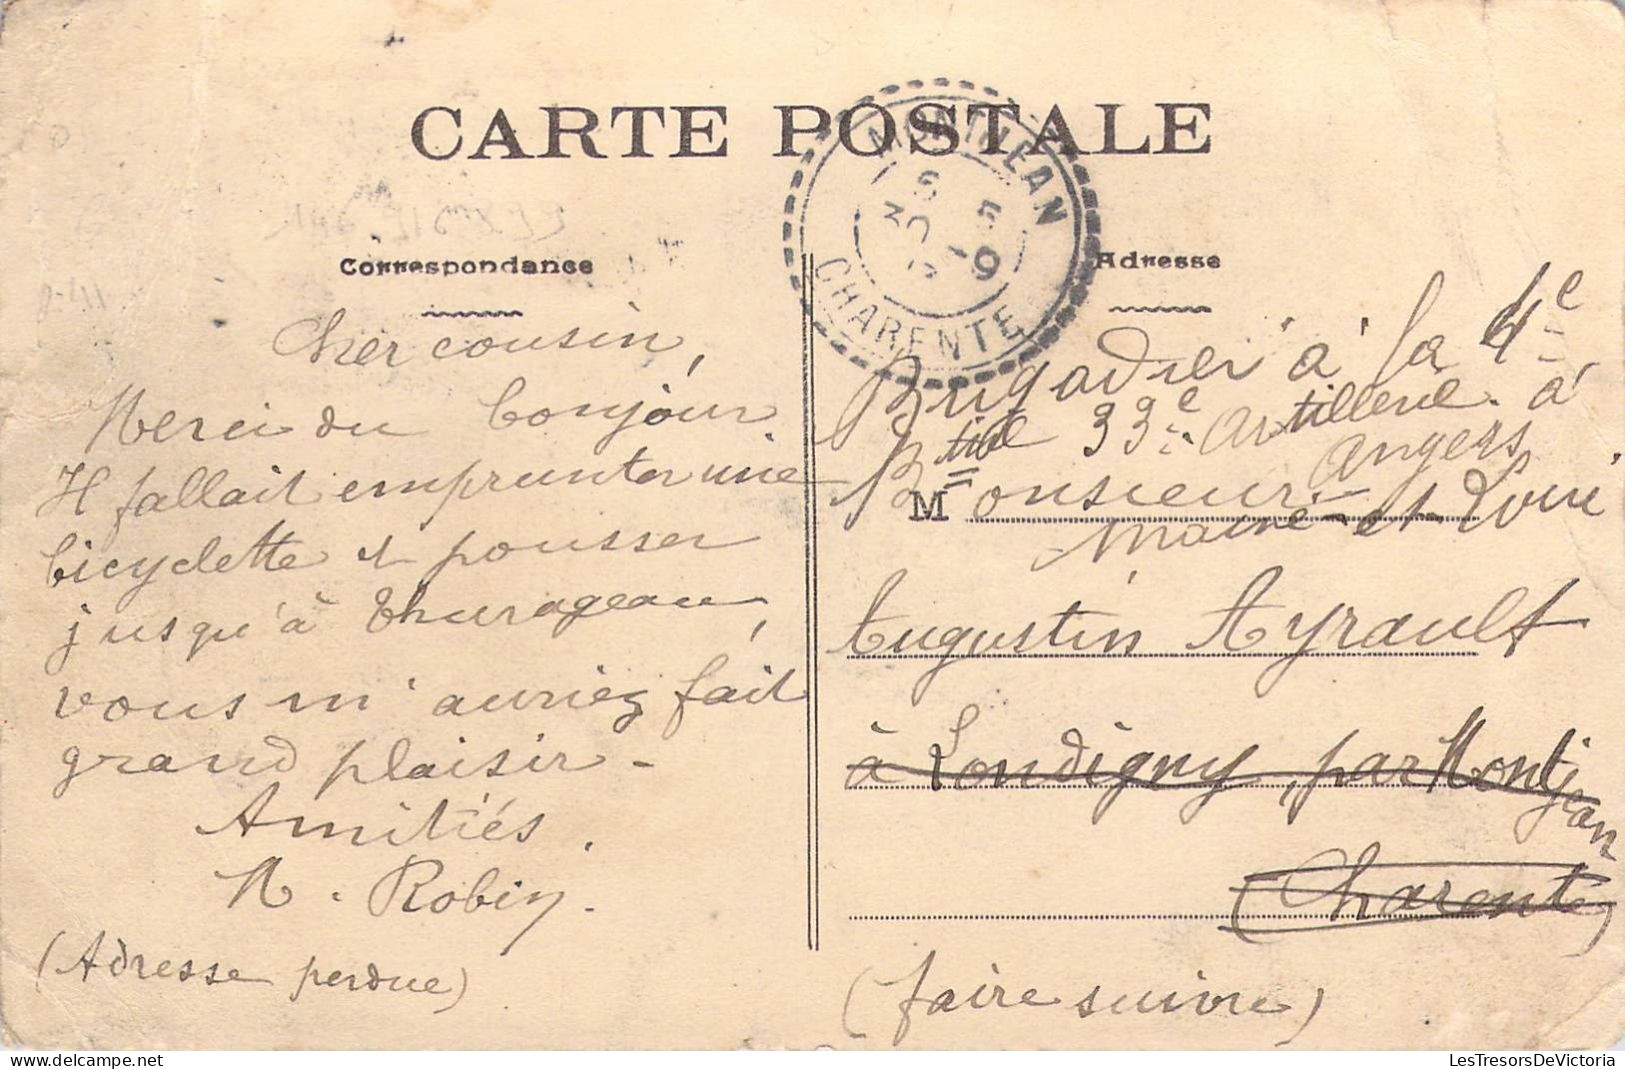 CARTE POSTALE
MONTJEAN
5
30 -9
CHARENTE
Correspondance
Cher cousin,
Merci du bonjour
Il fallait emprunter une
bicyclette et pousser
jusqu'à Thurageau,
vous m'auriez fait
grand plaisir -
Amitiés.
M. Robin.
(Adresse perdue)
Adresse
Brigadier à la 4e
Btie 33e Artillerie. à
Angers
Maine-et-Loire
Monsieur
Augustin Ayrault
à Londigny, par Montjean
(Charente)
(faire suivre)
LesTresorsDeVictoria